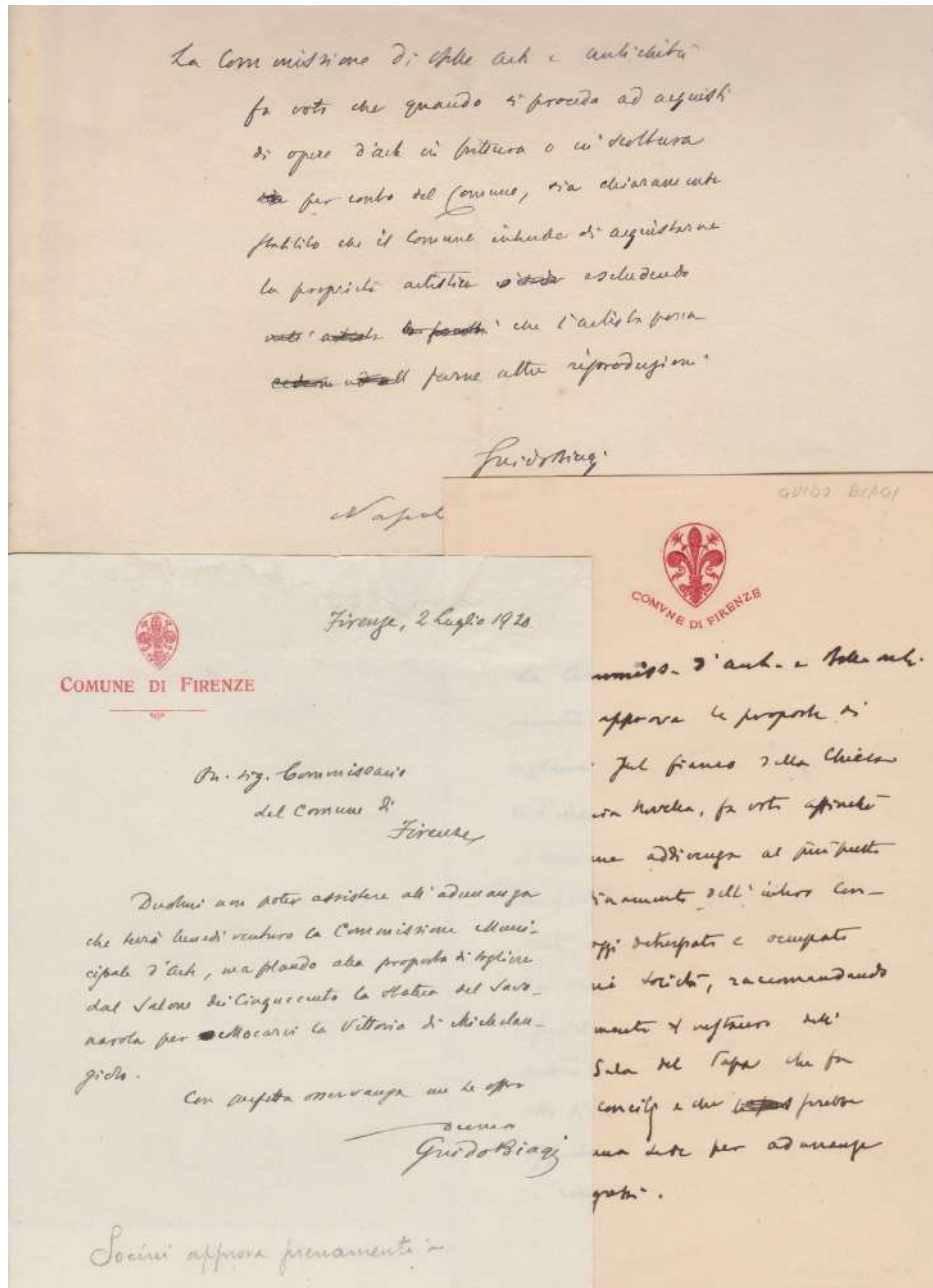 La Commissione di Belle Arti e antichità
fa voti che quando si proceda ad acquisti
di opere d'arte in pittura o in scoltura
per conto del Comune, sia chiaramente
stabilito che il Comune intende di acquistarne
la proprietà artistica escludendo
che l'artista possa
farne altre riproduzioni
Guido Biagi
Napol
GUIDO BIAGI
COMVNE DI FIRENZE
ommiss. d'arte e Belle arti
approva le proposte di
sul fianco della Chiesa
ria Novella, fa voti affinché
une addivenga al più presto
dell'intero Con-
oggi deturpato e occupato
società, raccomandando
restauro dell'
Sala del Papa che fu
e che potrebbe
una sede per adunanze
Firenze, 2 Luglio 1920
COMUNE DI FIRENZE
On. sig. Commissario
del Comune di
Firenze
Duolmi non poter assistere all'adunanza
che terrà lunedì venturo la Commissione Muni-
cipale d'Arte, ma plaudo alla proposta di togliere
dal Salone dei Cinquecento la statua del Savo-
narola per collocarci la Vittoria di Michelan-
giolo.
Con perfetta osservanza me Le offro
Guido Biagi
Socini approva pienamente